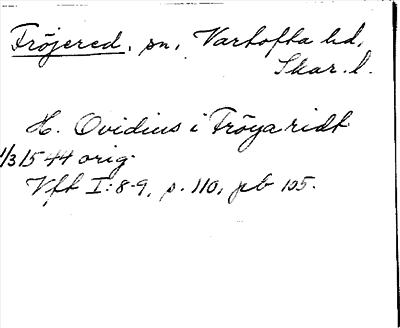 Fröjered, sn, Vartofta hd,
Skar. l.
H. Ovidius i Fröyaridt
1/3 1544 orig.
Vft I: 8-9, s. 110, pb 105.